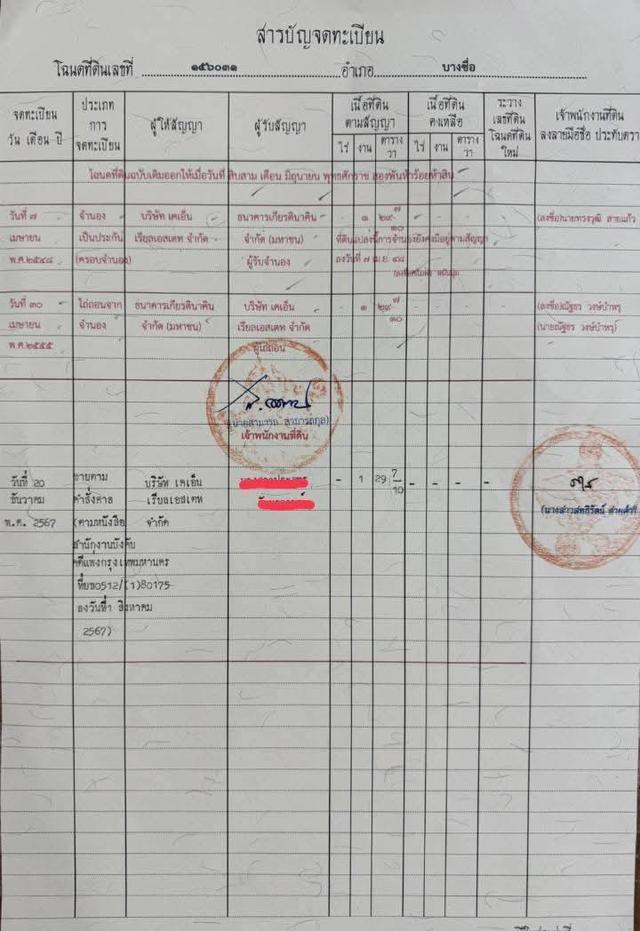 สารบัญจดทะเบียน
โฉนดที่ดินเลขที่ ๑๕๖๐๓๑ อำเภอ บางซื่อ
จดทะเบียน วัน เดือน ปี
ประเภท การ จดทะเบียน
ผู้ให้สัญญา
ผู้รับสัญญา
เนื้อที่ดิน ตามสัญญา
ไร่ งาน ตาราง วา
เนื้อที่ดิน คงเหลือ
ไร่ งาน ตาราง วา
ระวาง เลขที่ดิน โฉนดที่ดิน ใหม่
เจ้าพนักงานที่ดิน ลงลายมือชื่อ ประทับตรา
โฉนดที่ดินฉบับเดิมออกให้เมื่อวันที่ สิบสาม เดือน มิถุนายน พุทธศักราช สองพันห้าร้อยห้าสิบ
วันที่ ๗ จำนอง บริษัท เคเอ็น ธนาคารเกียรตินาคิน - ๑ ๒๙ ๗/๑๐ (ลงชื่อ)นายทรงวุฒิ สายแก้ว
เมษายน เป็นประกัน เรียลเอสเตท จำกัด จำกัด (มหาชน) ที่ดินแปลงนี้การจำนองยังคงมีอยู่ตามสัญญา
พ.ศ.๒๕๔๘ (ครอบจำนอง) ผู้รับจำนอง ลงวันที่ ๗ เม.ย. ๔๘
วันที่ ๓๐ ไถ่ถอนจาก ธนาคารเกียรตินาคิน บริษัท เคเอ็น - ๑ ๒๙ ๗/๑๐ - - - - (ลงชื่อ)ณัฐธร วงษ์บำหรุ
เมษายน จำนอง จำกัด (มหาชน) เรียลเอสเตท จำกัด (นายณัฐธร วงษ์บำหรุ)
พ.ศ.๒๕๕๕ ผู้ไถ่ถอน
(นายสามารถ สามารถกุล)
เจ้าพนักงานที่ดิน
วันที่ 20 ขายตาม บริษัท เคเอ็น - 1 29 7/10 - - - -
ธันวาคม คำสั่งศาล เรียลเอสเตท
พ.ศ. 2567 (ตามหนังสือ จำกัด
สำนักงานบังคับ
คดีแพ่งกรุงเทพมหานคร
ที่ยธ0512/(1)80175
ลงวันที่1 สิงหาคม
2567)